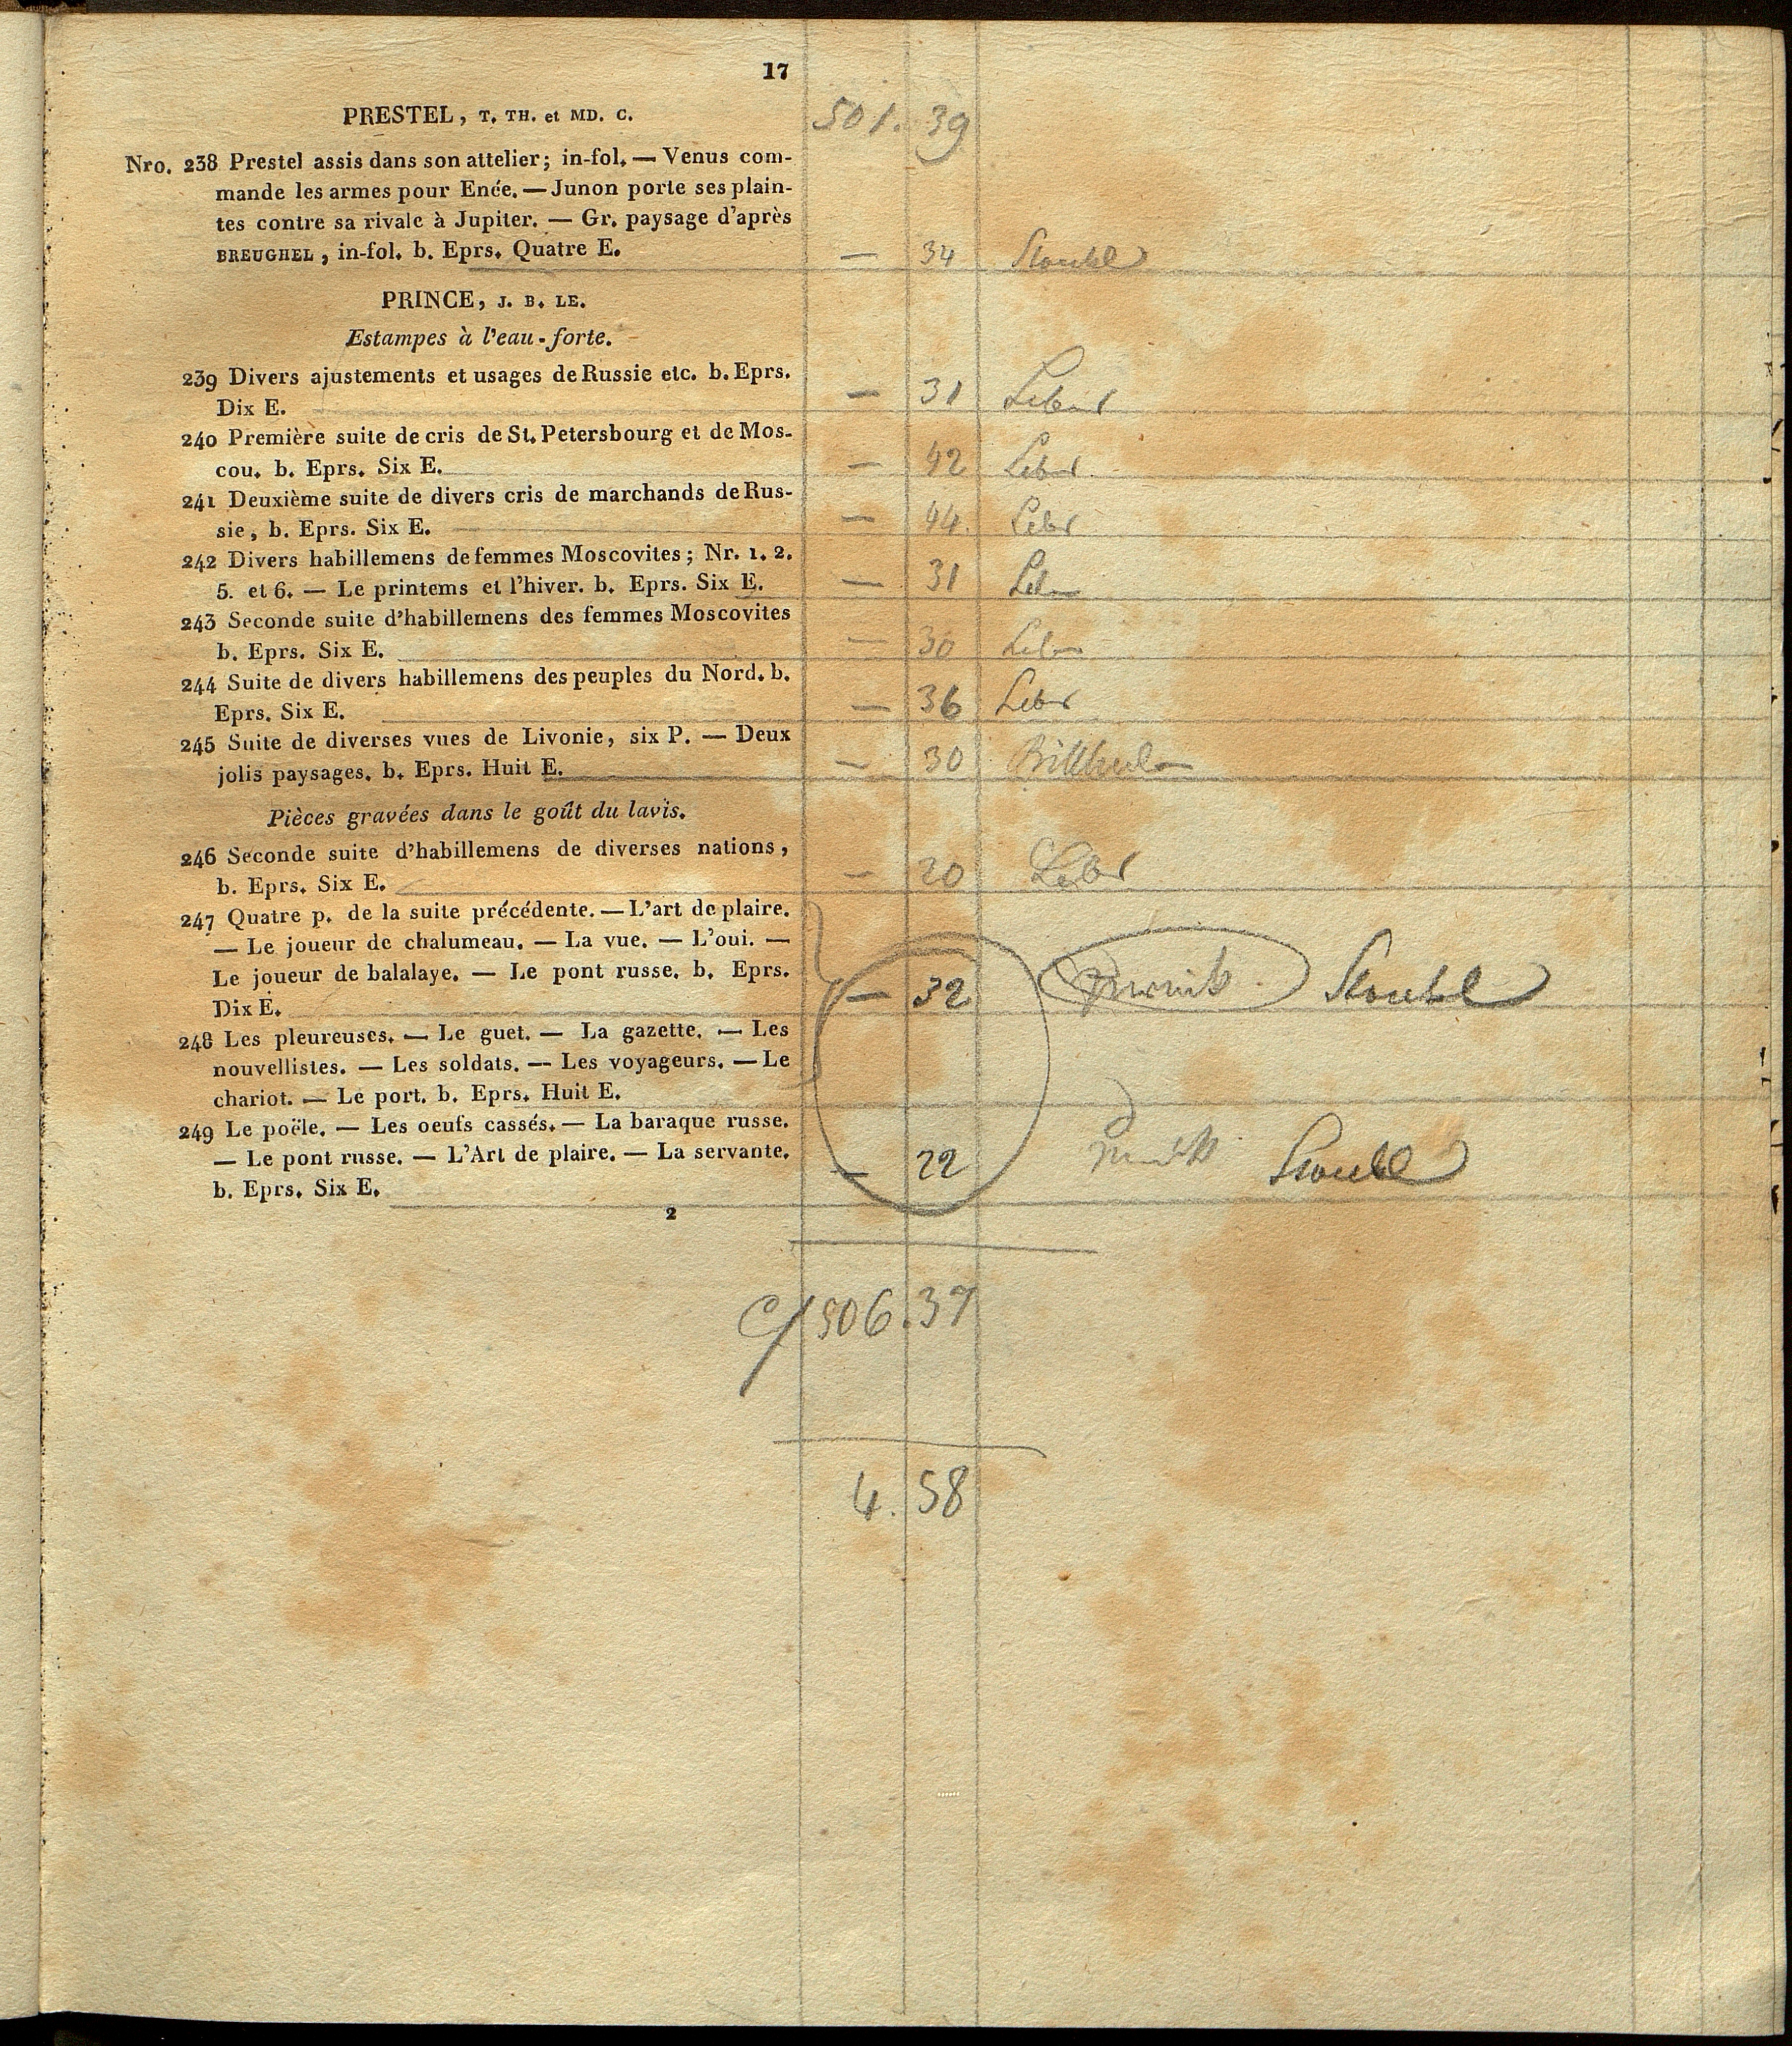 17
501. 39
PRESTEL, T. TH. et MD. C.
Nro. 238 Prestel assis dans son attelier; in-fol. — Venus com-
mande les armes pour Enée. — Junon porte ses plain-
tes contre sa rivale à Jupiter. — Gr. paysage d'après
BREUGHEL, in-fol. b. Eprs. Quatre E. — 34
PRINCE, J. B. LE.
Estampes à l'eau-forte.
239 Divers ajustements et usages de Russie etc. b. Eprs.
Dix E. — 31
240 Première suite de cris de St. Petersbourg et de Mos-
cou. b. Eprs. Six E. — 42
241 Deuxième suite de divers cris de marchands de Rus-
sie, b. Eprs. Six E. — 44.
242 Divers habillemens de femmes Moscovites; Nr. 1. 2.
5. et 6. — Le printems et l'hiver. b. Eprs. Six E. — 31
243 Seconde suite d'habillemens des femmes Moscovites
b. Eprs. Six E. — 30
244 Suite de divers habillemens des peuples du Nord. b.
Eprs. Six E. — 36
245 Suite de diverses vues de Livonie, six P. — Deux
jolis paysages. b. Eprs. Huit E. — 30
Pièces gravées dans le goût du lavis.
246 Seconde suite d'habillemens de diverses nations,
b. Eprs. Six E. — 20
247 Quatre p. de la suite précédente. — L'art de plaire.
— Le joueur de chalumeau. — La vue. — L'oui. —
Le joueur de balalaye. — Le pont russe. b. Eprs.
Dix E. — 32
248 Les pleureuses. — Le guet. — La gazette. — Les
nouvellistes. — Les soldats. — Les voyageurs. — Le
chariot. — Le port. b. Eprs. Huit E.
249 Le poële. — Les oeufs cassés. — La baraque russe.
— Le pont russe. — L'Art de plaire. — La servante.
b. Eprs. Six E. — 22
2
506.37
4. 58